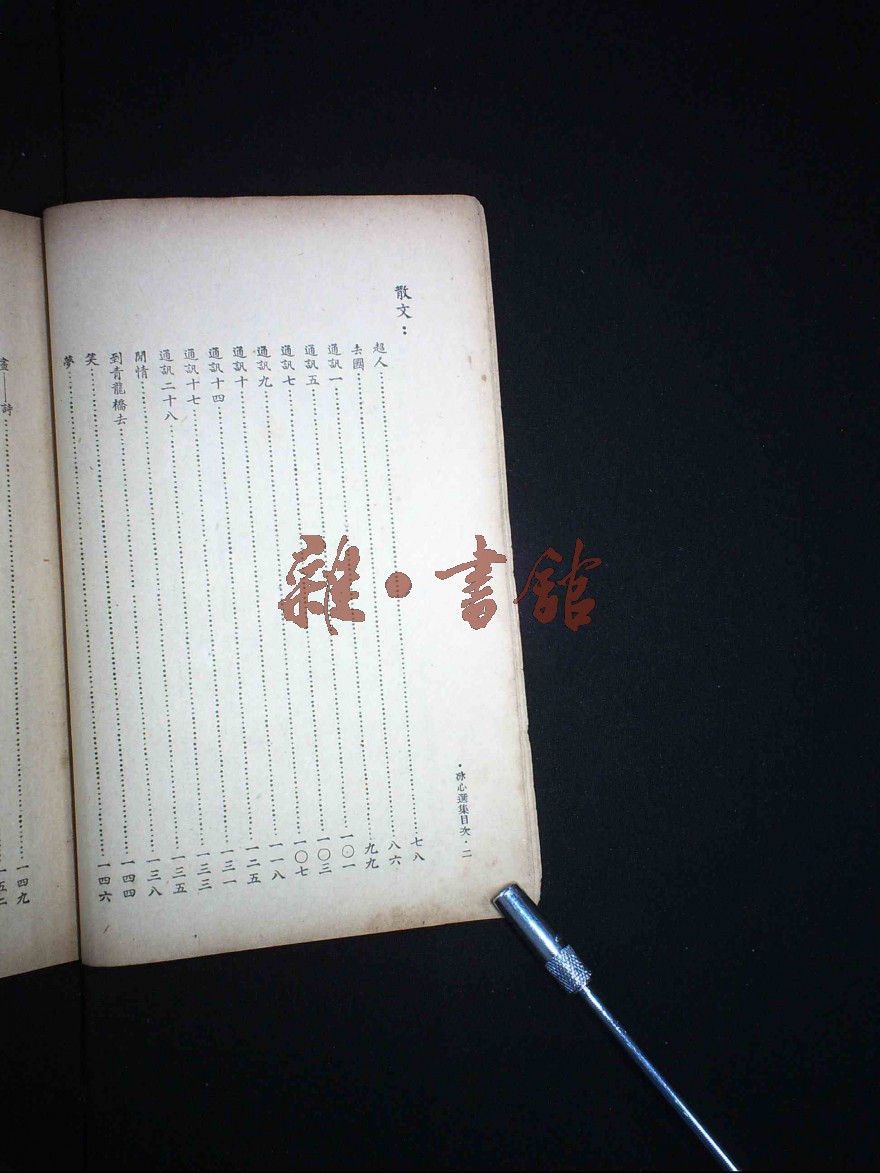 ·冰心選集目次·二
散文：
超人……七八
去國……八六
通訊一……九九
通訊五……一〇一
通訊七……一〇三
通訊九……一〇七
通訊十……一一八
通訊十四……一二五
通訊十七……一三一
通訊二十八……一三三
閒情……一三五
到青龍橋去……一三八
笑……一四四
夢……一四六
——詩……一四九
雜·書館